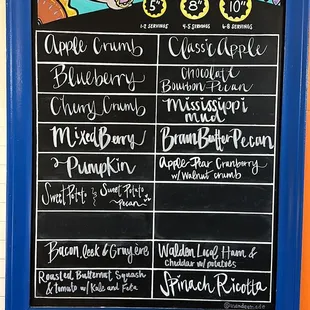 5" 8" 10"
1-2 SERVINGS 4-5 SERVINGS 6-8 SERVINGS
Apple Crumb
Classic Apple
Blueberry
Chocolate
Bourbon Pecan
Cherry Crumb
Mississippi
mud
Mixed Berry
Brown Butter Pecan
Pumpkin
Apple Pear Cranberry
w/ walnut crumb
Sweet Potato & Sweet Potato
pecan
Bacon, leek & Gruyere
Walden Local Ham &
cheddar w/ potatoes
Roasted Butternut Squash
& tomato w/ Kale and Feta
Spinach Ricotta